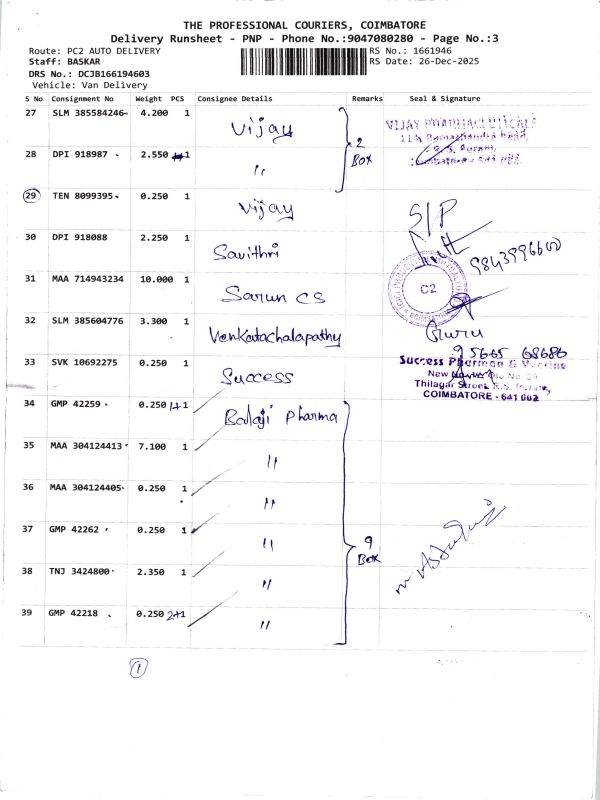 THE PROFESSIONAL COURIERS, COIMBATORE
Delivery Runsheet - PNP - Phone No.:9047080280 - Page No.:3
Route: PC2 AUTO DELIVERY
RS No.: 1661946
Staff: BASKAR
RS Date: 26-Dec-2025
DRS No.: DCJB166194603
Vehicle: Van Delivery
S No Consignment No Weight PCS Consignee Details Remarks Seal & Signature
27 SLM 385584246 4.200 1 Vijay
VIJAY PHARMACEUTICALS
2 Box
28 DPI 918987 2.550 1 "
29 TEN 8099395 0.250 1 Vijay
S/P
30 DPI 918088 2.250 1 Savithri
9843996600
31 MAA 714943234 10.000 1 Sarun CS
C2
32 SLM 385604776 3.300 1 Venkatachalapathy
Guru
95665 68686
33 SVK 10692275 0.250 1 Success
Success Pharma & Vaccine
Thilagar Street, R.S. Puram,
COIMBATORE - 641 002
34 GMP 42259 0.250 1+1 Balaji Pharma
35 MAA 304124413 7.100 1 "
36 MAA 304124405 0.250 1 "
37 GMP 42262 0.250 1 "
9 Box
38 TNJ 3424800 2.350 1 "
39 GMP 42218 0.250 2+1 "
1